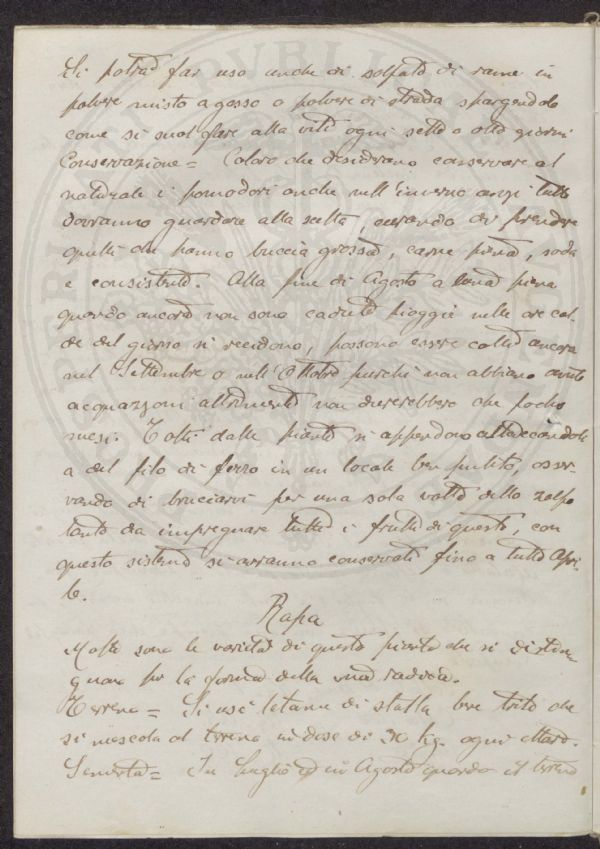 Si potrà far uso anche di solfato di rame in
polvere misto a gesso o polvere di strada spargendolo
come si suol fare alle viti ogni sette o otto giorni
Conservazione = Coloro che desiderano conservare al
naturale i pomodori anche nell'inverno anzi tutto
dovranno guardare alla scelta, curando di prendere
quelli che hanno buccia grossa, carne piena, soda
e consistente. Alla fine di Agosto a luna piena
quando ancora non sono cadute pioggie nelle ore cal-
de del giorno si recidono, possono essere colti ancora
nel Settembre o nell'Ottobre purchè non abbiano avuto
acquazzoni altrimenti non durerebbero che pochi
mesi. Tolti dalle piante si appendono attaccandole
a del filo di ferro in un locale ben pulito, osser-
vando di bruciarvi per una sola volta dello zolfo
tanto da impregnare tutti i frutti di questo, con
questo sistema si avranno conservati fino a tutto Apri-
le.
Rapa
Molte sono le varietà di questa pianta che si distin-
guono per la forma della radice.
Terreno = Si usi letame di stalla ben trito che
si mescola al terreno in dose di 30 kg. ogni
Semente = In Luglio ed in Agosto quando il terreno
PVBLI